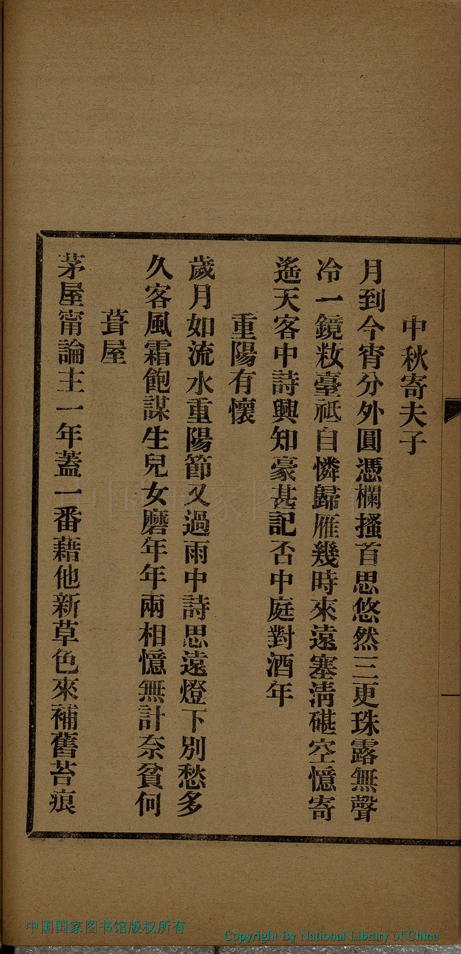 中秋寄夫子
月到今宵分外圓憑欄搔首思悠然三更珠露無聲
冷一鏡妝臺祗自憐歸雁幾時來遠塞淸砧空憶寄
遙天客中詩興知豪甚記否中庭對酒年
重陽有懷
歲月如流水重陽節又過雨中詩思遠燈下別愁多
久客風霜飽謀生兒女磨年年兩相憶無計奈貧何
葺屋
茅屋甯論主一年蓋一番藉他新草色來補舊苔痕
中国国家图书馆版权所有
Copyright By National Library of China